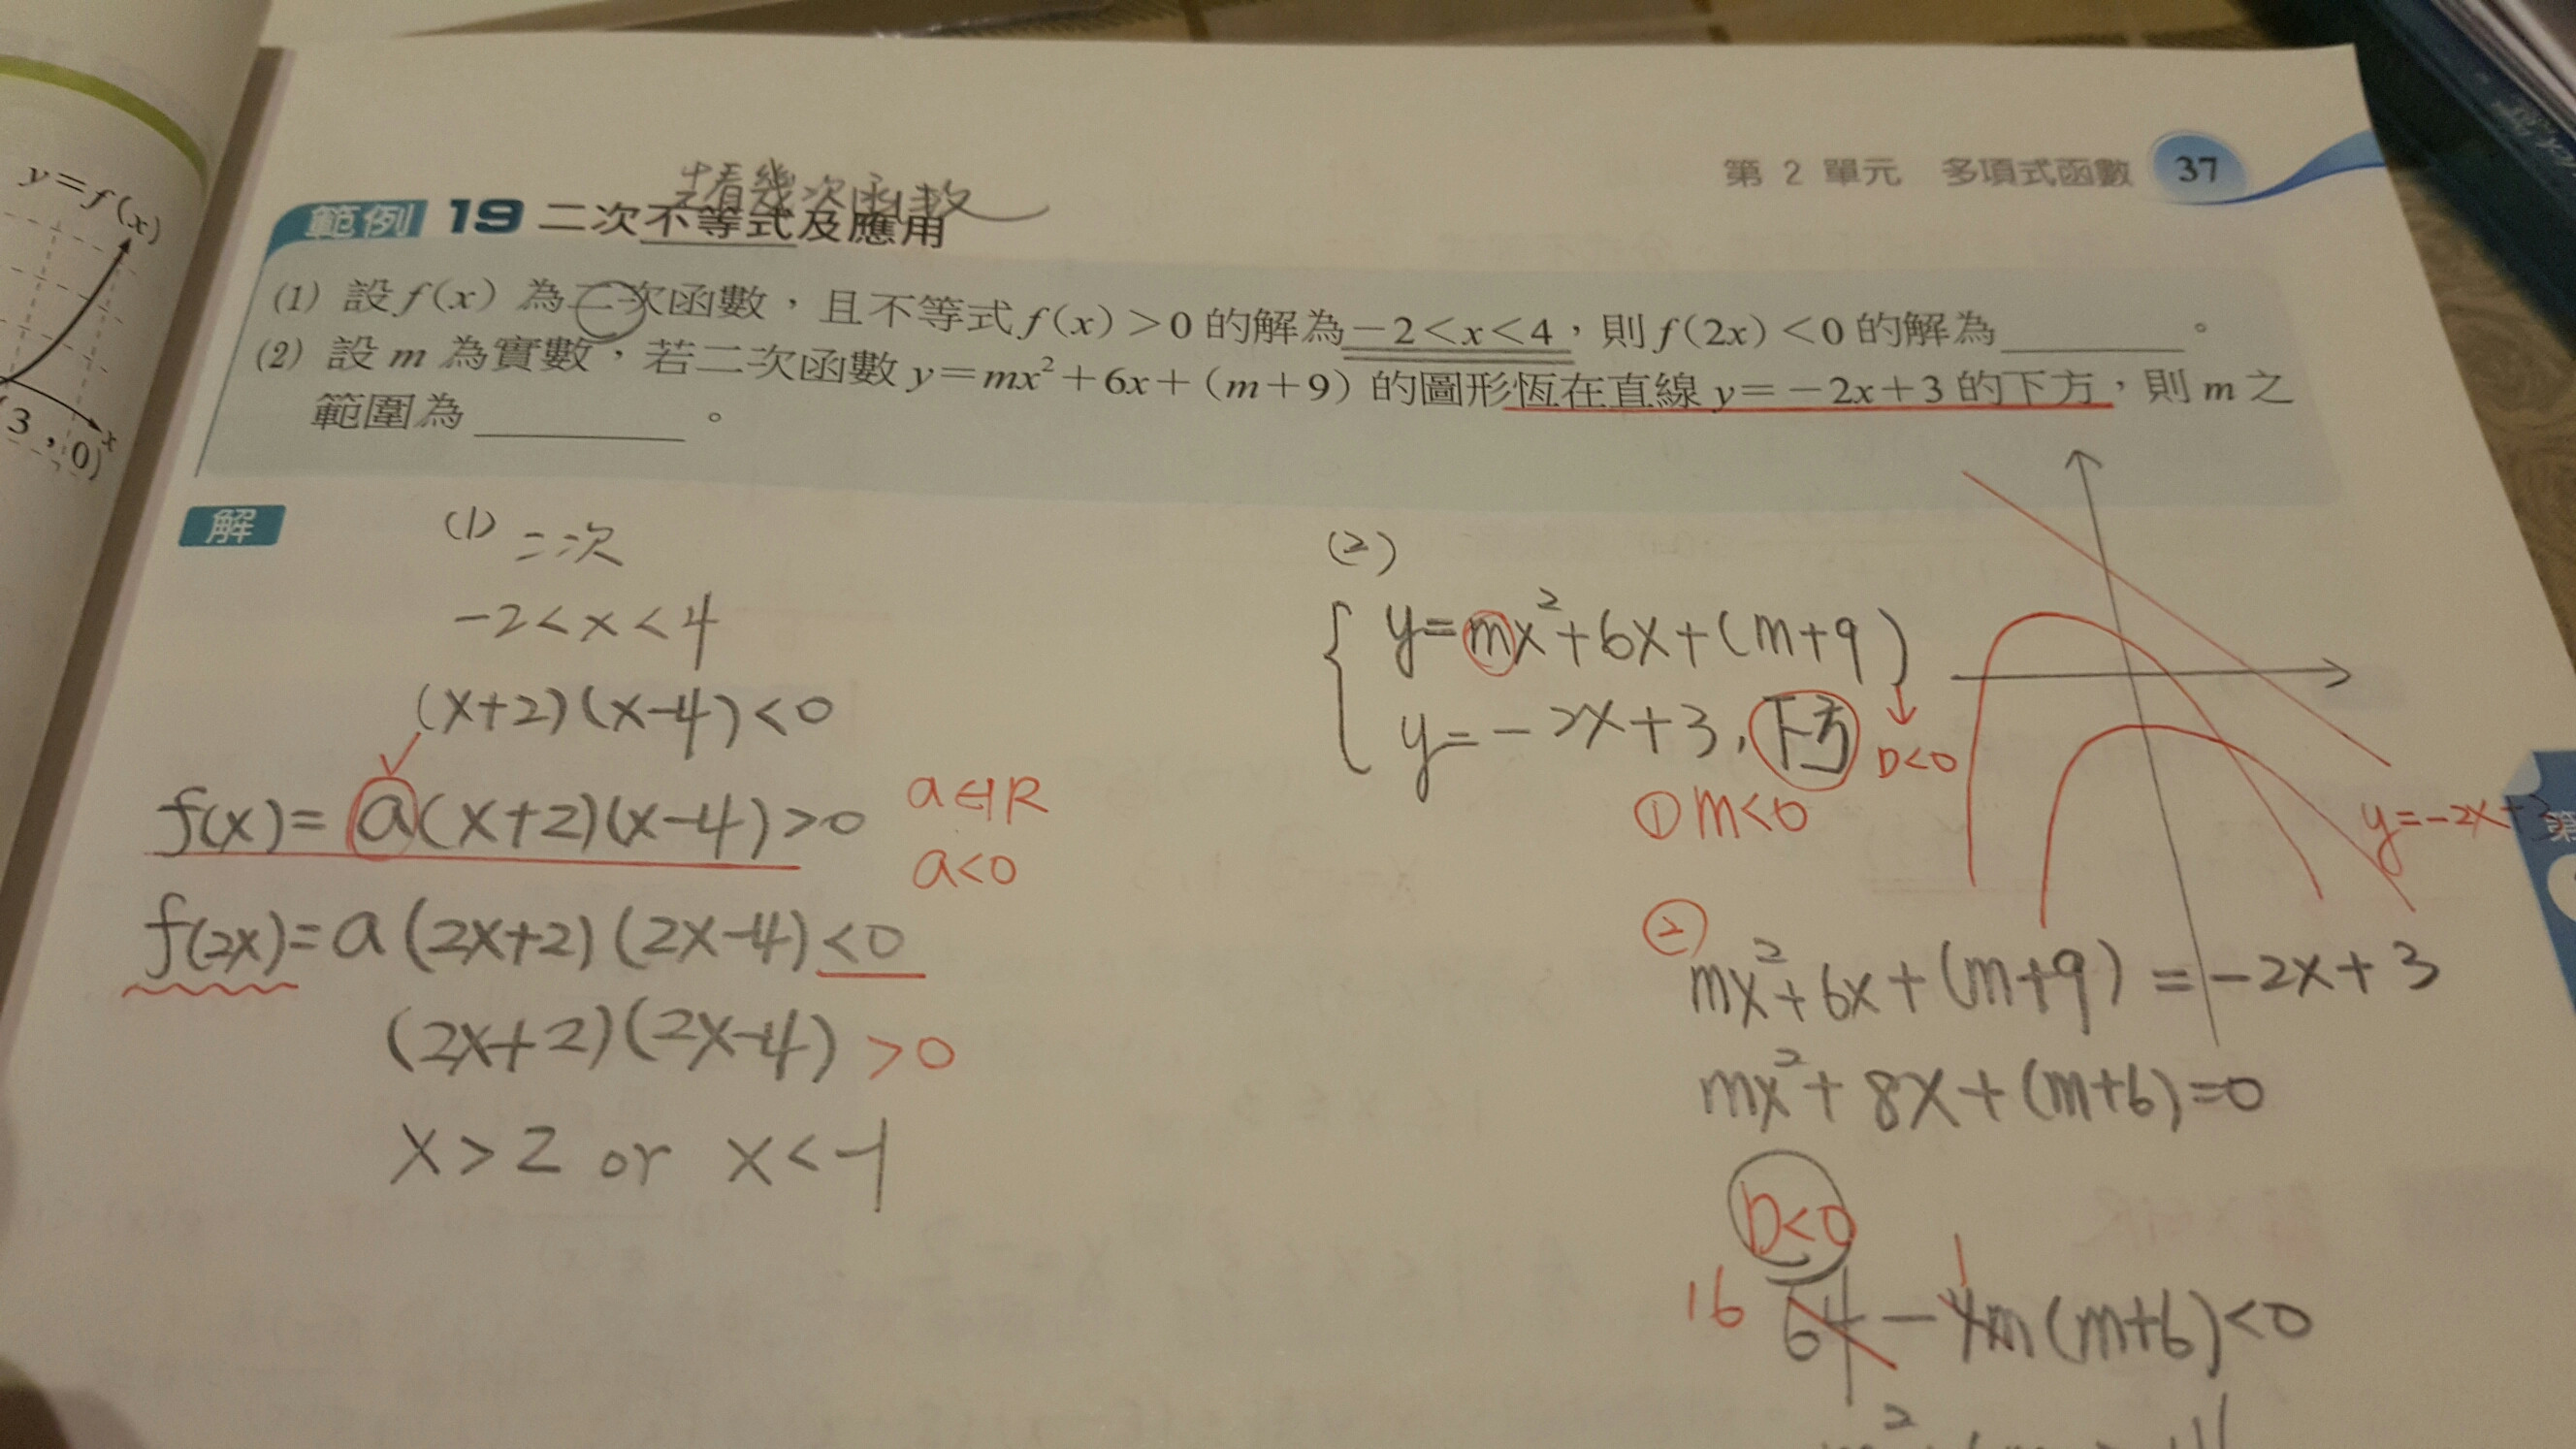 y=f(x)
(3,0)
x
第 2 單元 多項式函數 37
先看幾次函數
範例 19 二次不等式及應用
(1) 設 f(x) 為二次函數，且不等式 f(x)>0 的解為 −2<x<4，則 f(2x)<0 的解為＿＿＿＿。
(2) 設 m 為實數，若二次函數 y=mx²+6x+(m+9) 的圖形恆在直線 y=−2x+3 的下方，則 m 之
範圍為＿＿＿＿。
解
(1) 二次
-2<x<4
(x+2)(x-4)<0
f(x)=a(x+2)(x-4)>0
a∈R
a<0
f(2x)=a(2x+2)(2x-4)<0
(2x+2)(2x-4)>0
x>2 or x<-1
(2)
y=mx²+6x+(m+9)
y=-2x+3，下方
D<0
① m<0
y=-2x+3
②
mx²+6x+(m+9)=-2x+3
mx²+8x+(m+6)=0
D<0
16 1
64-4m(m+6)<0